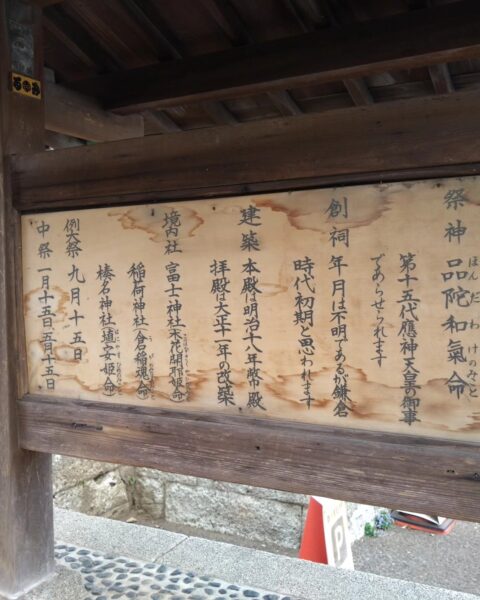 祭神 品陀和氣命
ほんだわけのみこと
第十五代應神天皇の御事
であらせられます
創祠 年月は不明であるが鎌倉
時代初期と思われます
建築 本殿は明治十八年幣殿
拝殿は大正十一年の改築
境内社 富士神社(木花開耶姫命)
稲荷神社(倉稲魂命)
榛名神社(埴安姫命)
例大祭 九月十五日
中祭 一月十五日五月十五日